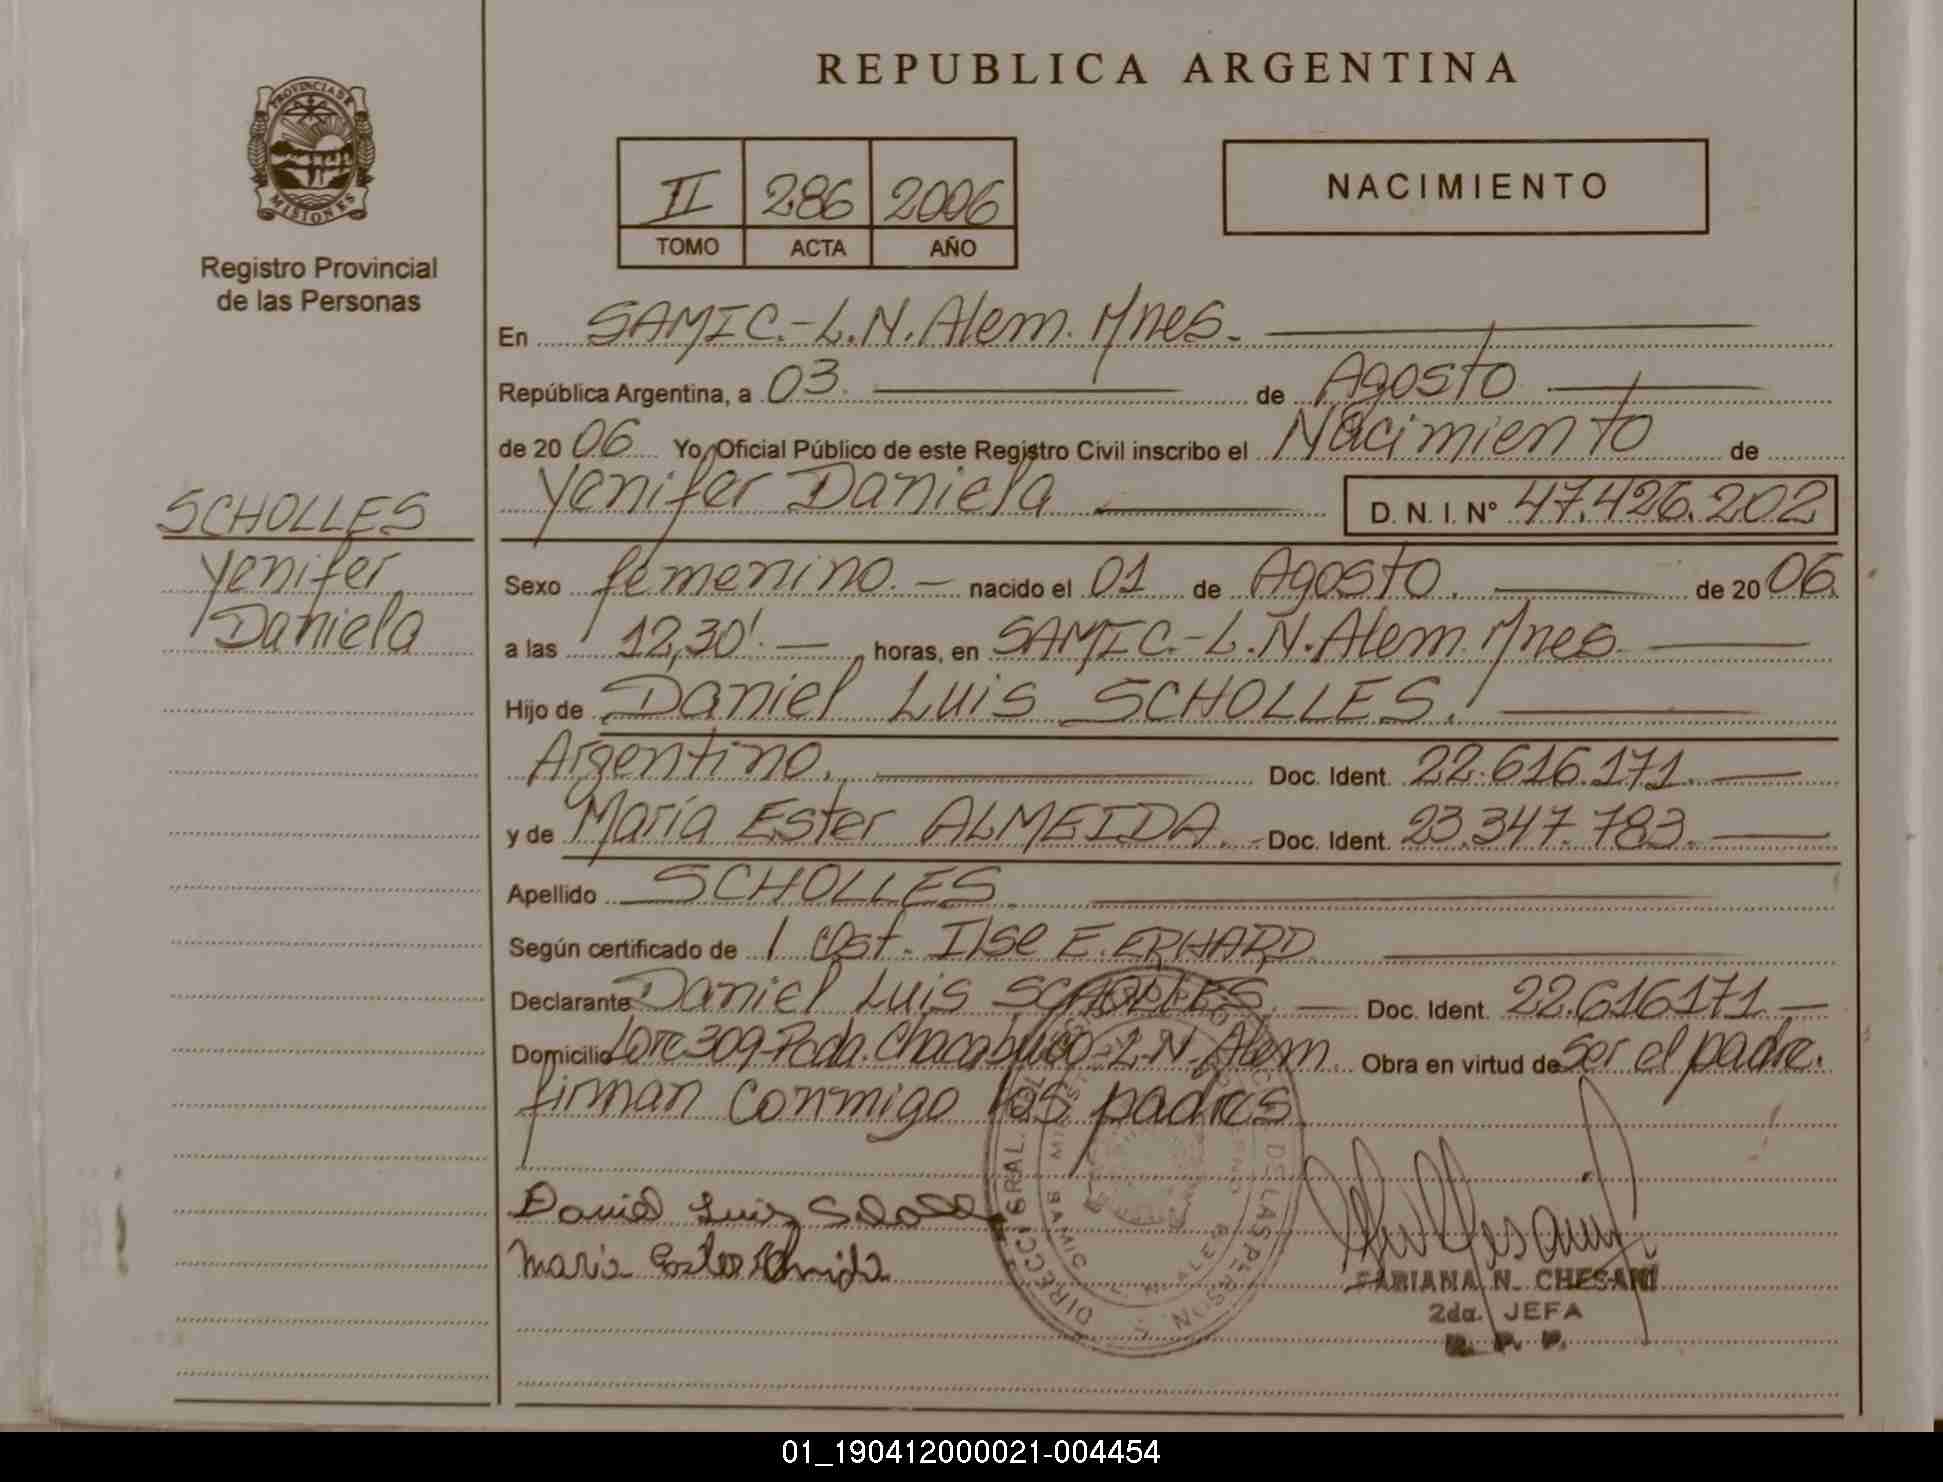 REPUBLICA ARGENTINA
PROVINCIA DE MISIONES
Registro Provincial
de las Personas
II 286 2006
TOMO ACTA AÑO
NACIMIENTO
En SAMIC.-L.N.Alem. Mnes.
República Argentina, a 03. de Agosto
de 20 06 Yo, Oficial Público de este Registro Civil inscribo el Nacimiento de
Yenifer Daniela D. N. I. N° 47.426.202
SCHOLLES
Yenifer
Daniela
Sexo femenino. nacido el 01 de Agosto. de 20 06.
a las 12,30'. horas, en SAMIC.-L.N.Alem. Mnes.
Hijo de Daniel Luis SCHOLLES.
Argentino. Doc. Ident. 22.616.171.
y de María Ester ALMEIDA. Doc. Ident. 23.347.783.
Apellido SCHOLLES.
Según certificado de / Obst. Ilse E. ERHARD.
Declarante Daniel Luis SCHOLLES. Doc. Ident. 22.616171
Domicilio Lote 309-Pcda. Chacabuco-L-N-Alem. Obra en virtud de ser el padre.
firman conmigo los padres.
Daniel Luis
Maria
FABIANA N. CHESANI
2da. JEFA
R. P. P.
01_190412000021-004454